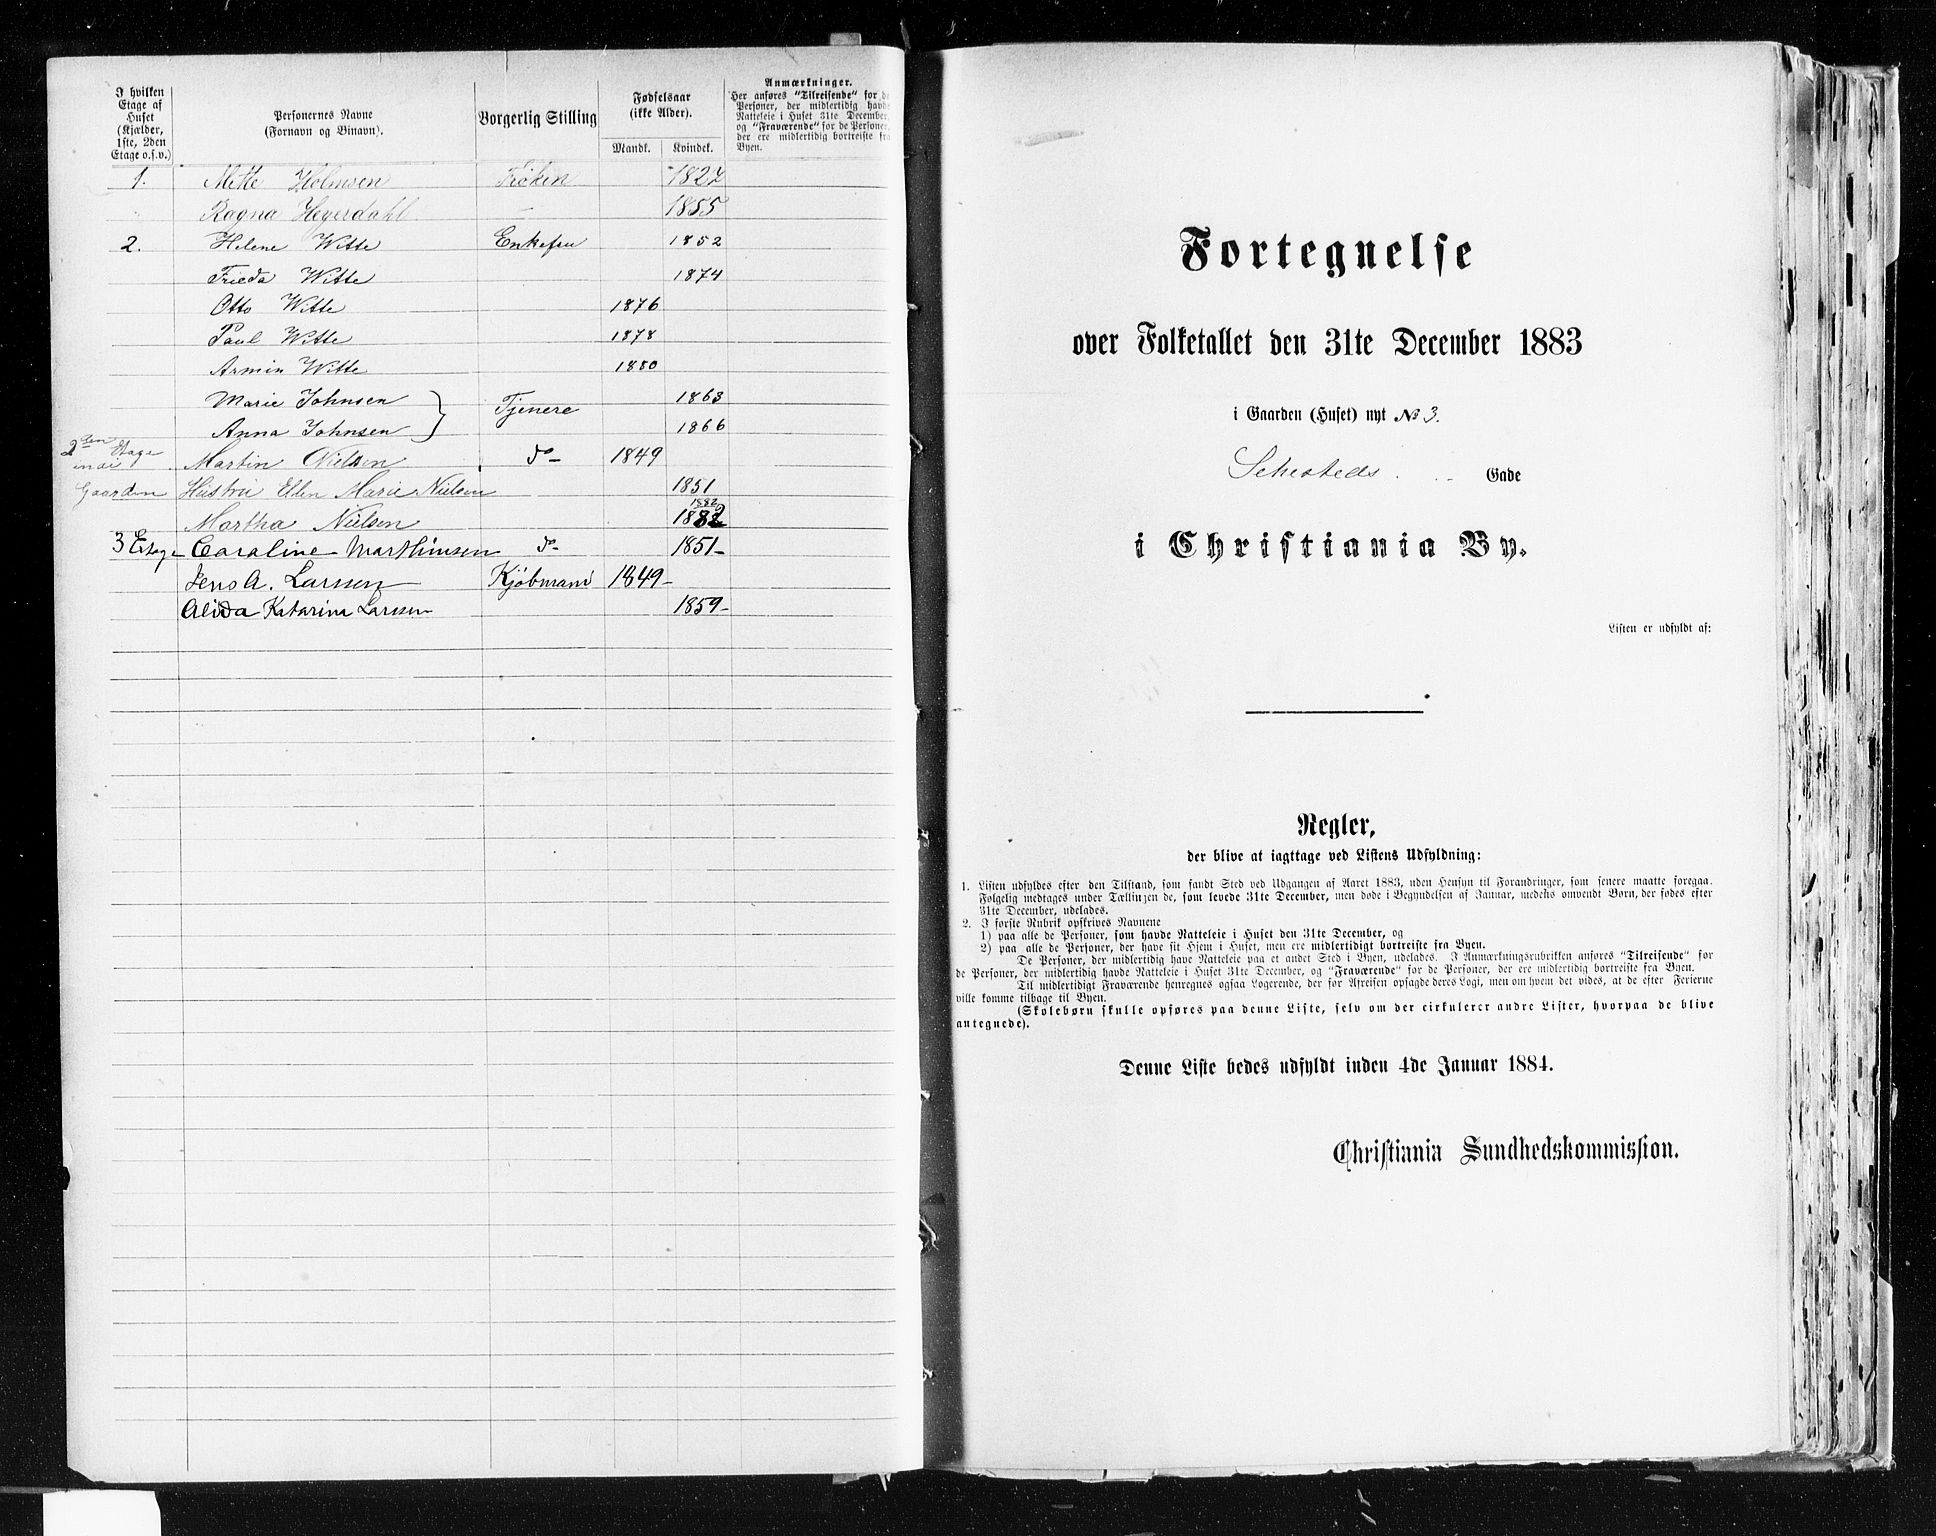 I hvilken
Etage af
Huset
(Kjælder,
1ste, 2den
Etage o.s.v.)
Personernes Navne
(Fornavn og Binavn).
Borgerlig Stilling
Fødselsaar
(ikke Alder).
Mandk. Kvindek.
Anmærkninger.
Her anføres "Tilreisende" for de
Personer, der midlertidig havde
Natteleie i Huset 31te December,
og "Fraværende" for de Personer,
der ere midlertidig bortreiste fra
Byen.
1. Mette Holmsen Frøken 1827
Ragna Heyerdahl — 1855
2. Helene Witte Enkefru 1852
Frieda Witte 1874
Otto Witte 1876
Paul Witte 1878
Armin Witte 1880
Marie Johnsen } Tjenere 1863
Anna Johnsen 1866
2den Etage
Martin Nielsen do 1849
Gaarden Hustru Ellen Marie Nielsen 1851
1882
Martha Nielsen 1882
3 Etage Caroline Marthinsen do 1851
Jens A. Larssen Kjøbmand 1849
Alida Katarina Larssen 1859
Fortegnelse
over Folketallet den 31te December 1883
i Gaarden (Huset) nyt No 3.
Sehesteds Gade
i Christiania By.
Listen er udfyldt af:
Regler,
der blive at iagttage ved Listens Udfyldning:
1. Listen udfyldes efter den Tilstand, som fandt Sted ved Udgangen af Aaret 1883, uden Hensyn til Forandringer, som senere maatte foregaa.
Følgelig medtages under Tællingen de, som levede 31te December, men døde i Begyndelsen af Januar, medens omvendt Børn, der fødes efter
31te December, udelades.
2. I første Rubrik opskrives Navnene
1) paa alle de Personer, som havde Natteleie i Huset den 31te December, og
2) paa alle de Personer, der have sit Hjem i Huset, men ere midlertidigt bortreiste fra Byen.
De Personer, der midlertidig have Natteleie paa et andet Sted i Byen, udelades. I Anmærkningsrubriken anføres "Tilreisende" for
de Personer, der midlertidig havde Natteleie i Huset 31te December, og "Fraværende" for de Personer, der ere midlertidig bortreiste fra Byen.
Til midlertidigt Fraværende henregnes ogsaa Logerende, der før Afreisen opsagde deres Logi, men om hvem det vides, at de efter Ferierne
ville komme tilbage til Byen.
(Skolebørn skulle opføres paa denne Liste, selv om der cirkulerer andre Lister, hvorpaa de blive
antegnede).
Denne Liste bedes udfyldt inden 4de Januar 1884.
Christiania Sundhedskommission.